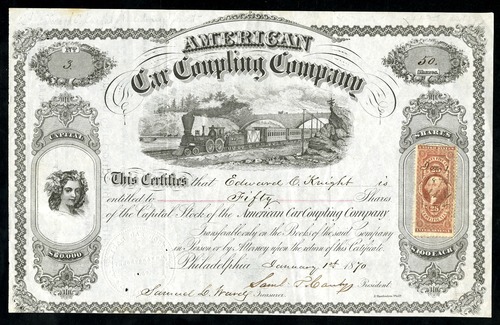 AMERICAN
Car Coupling Company
No.
3
50
Shares.
CAPITAL
SHARES
This Certifies that Edward C. Knight is
entitled to Fifty Shares
of the Capital Stock of the American Car Coupling Company
Transferable only on the Books of the said Company
in Person or by Attorney upon the return of this Certificate.
$60,000
$100 EACH
Philadelphia January 1st 1870
President.
Samuel C. Ward Treasurer.